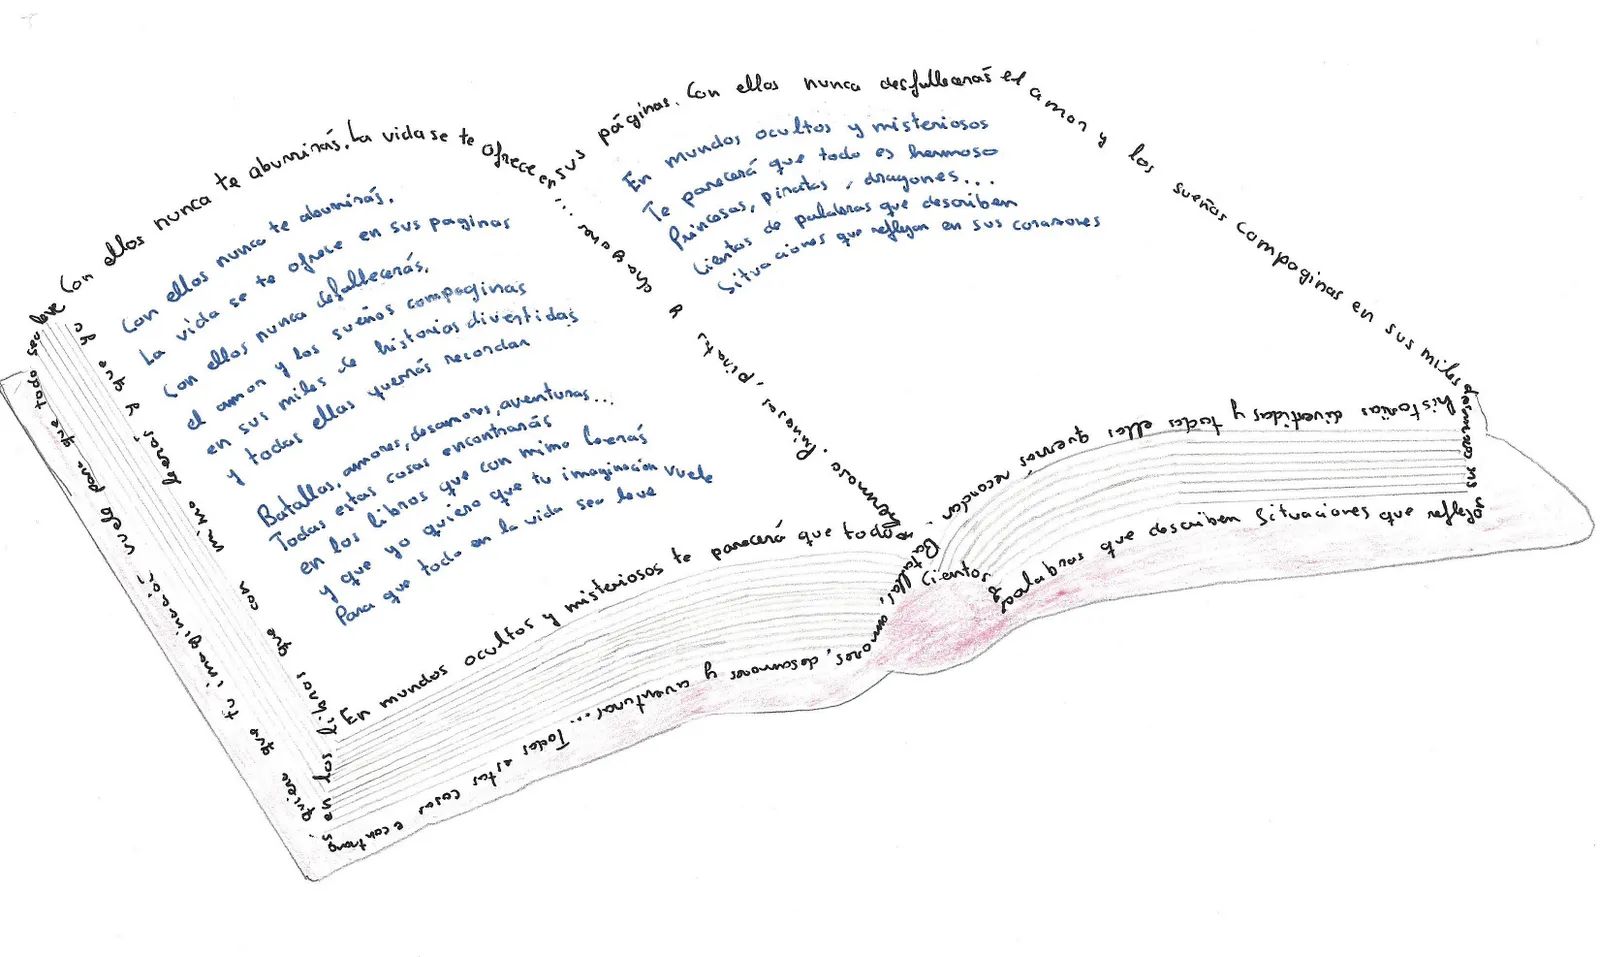 Con ellos nunca te aburrirás. La vida se te ofrece en sus páginas. Con ellos nunca desfallecerás el amor y los sueños compaginas en sus miles de
historias divertidas y todas ellas querrás recordar.
Batallas, amores, desamores y aventuras... Todas estas cosas encontrarás
en los libros que con mimo leerás y que yo
quiero que tu imaginación vuele para que todo sea leve
En mundos ocultos y misteriosos te parecerá que todo es
hermoso. Princesas, piratas y dragones...
Cientos de palabras que describen situaciones que reflejan
en sus corazones
Con ellos nunca te aburrirás,
La vida se te ofrece en sus paginas
Con ellos nunca desfallecerás,
el amor y los sueños compaginas
en sus miles de historias divertidas
y todas ellas querrás recordar
Batallas, amores, desamores, aventuras...
Todas estas cosas encontrarás
en los libros que con mimo leerás
y que yo quiero que tu imaginación vuele
Para que todo en la vida sea leve
En mundos ocultos y misteriosos
Te parecerá que todo es hermoso
Princesas, piratas, dragones...
Cientos de palabras que describen
Situaciones que reflejan en sus corazones